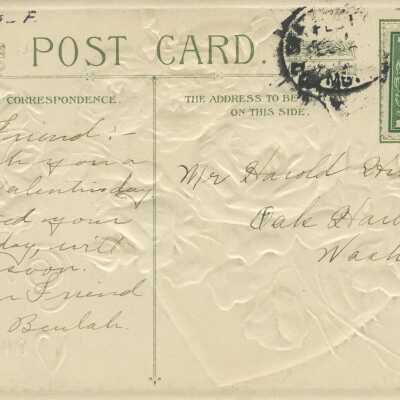 POST CARD.
CORRESPONDENCE.
THE ADDRESS TO BE
ON THIS SIDE.
Friend:-
you a
Valentines day
your
day, will
soon.
Friend
Beulah.
Mr Harold
Oak Har
Wash
MO.